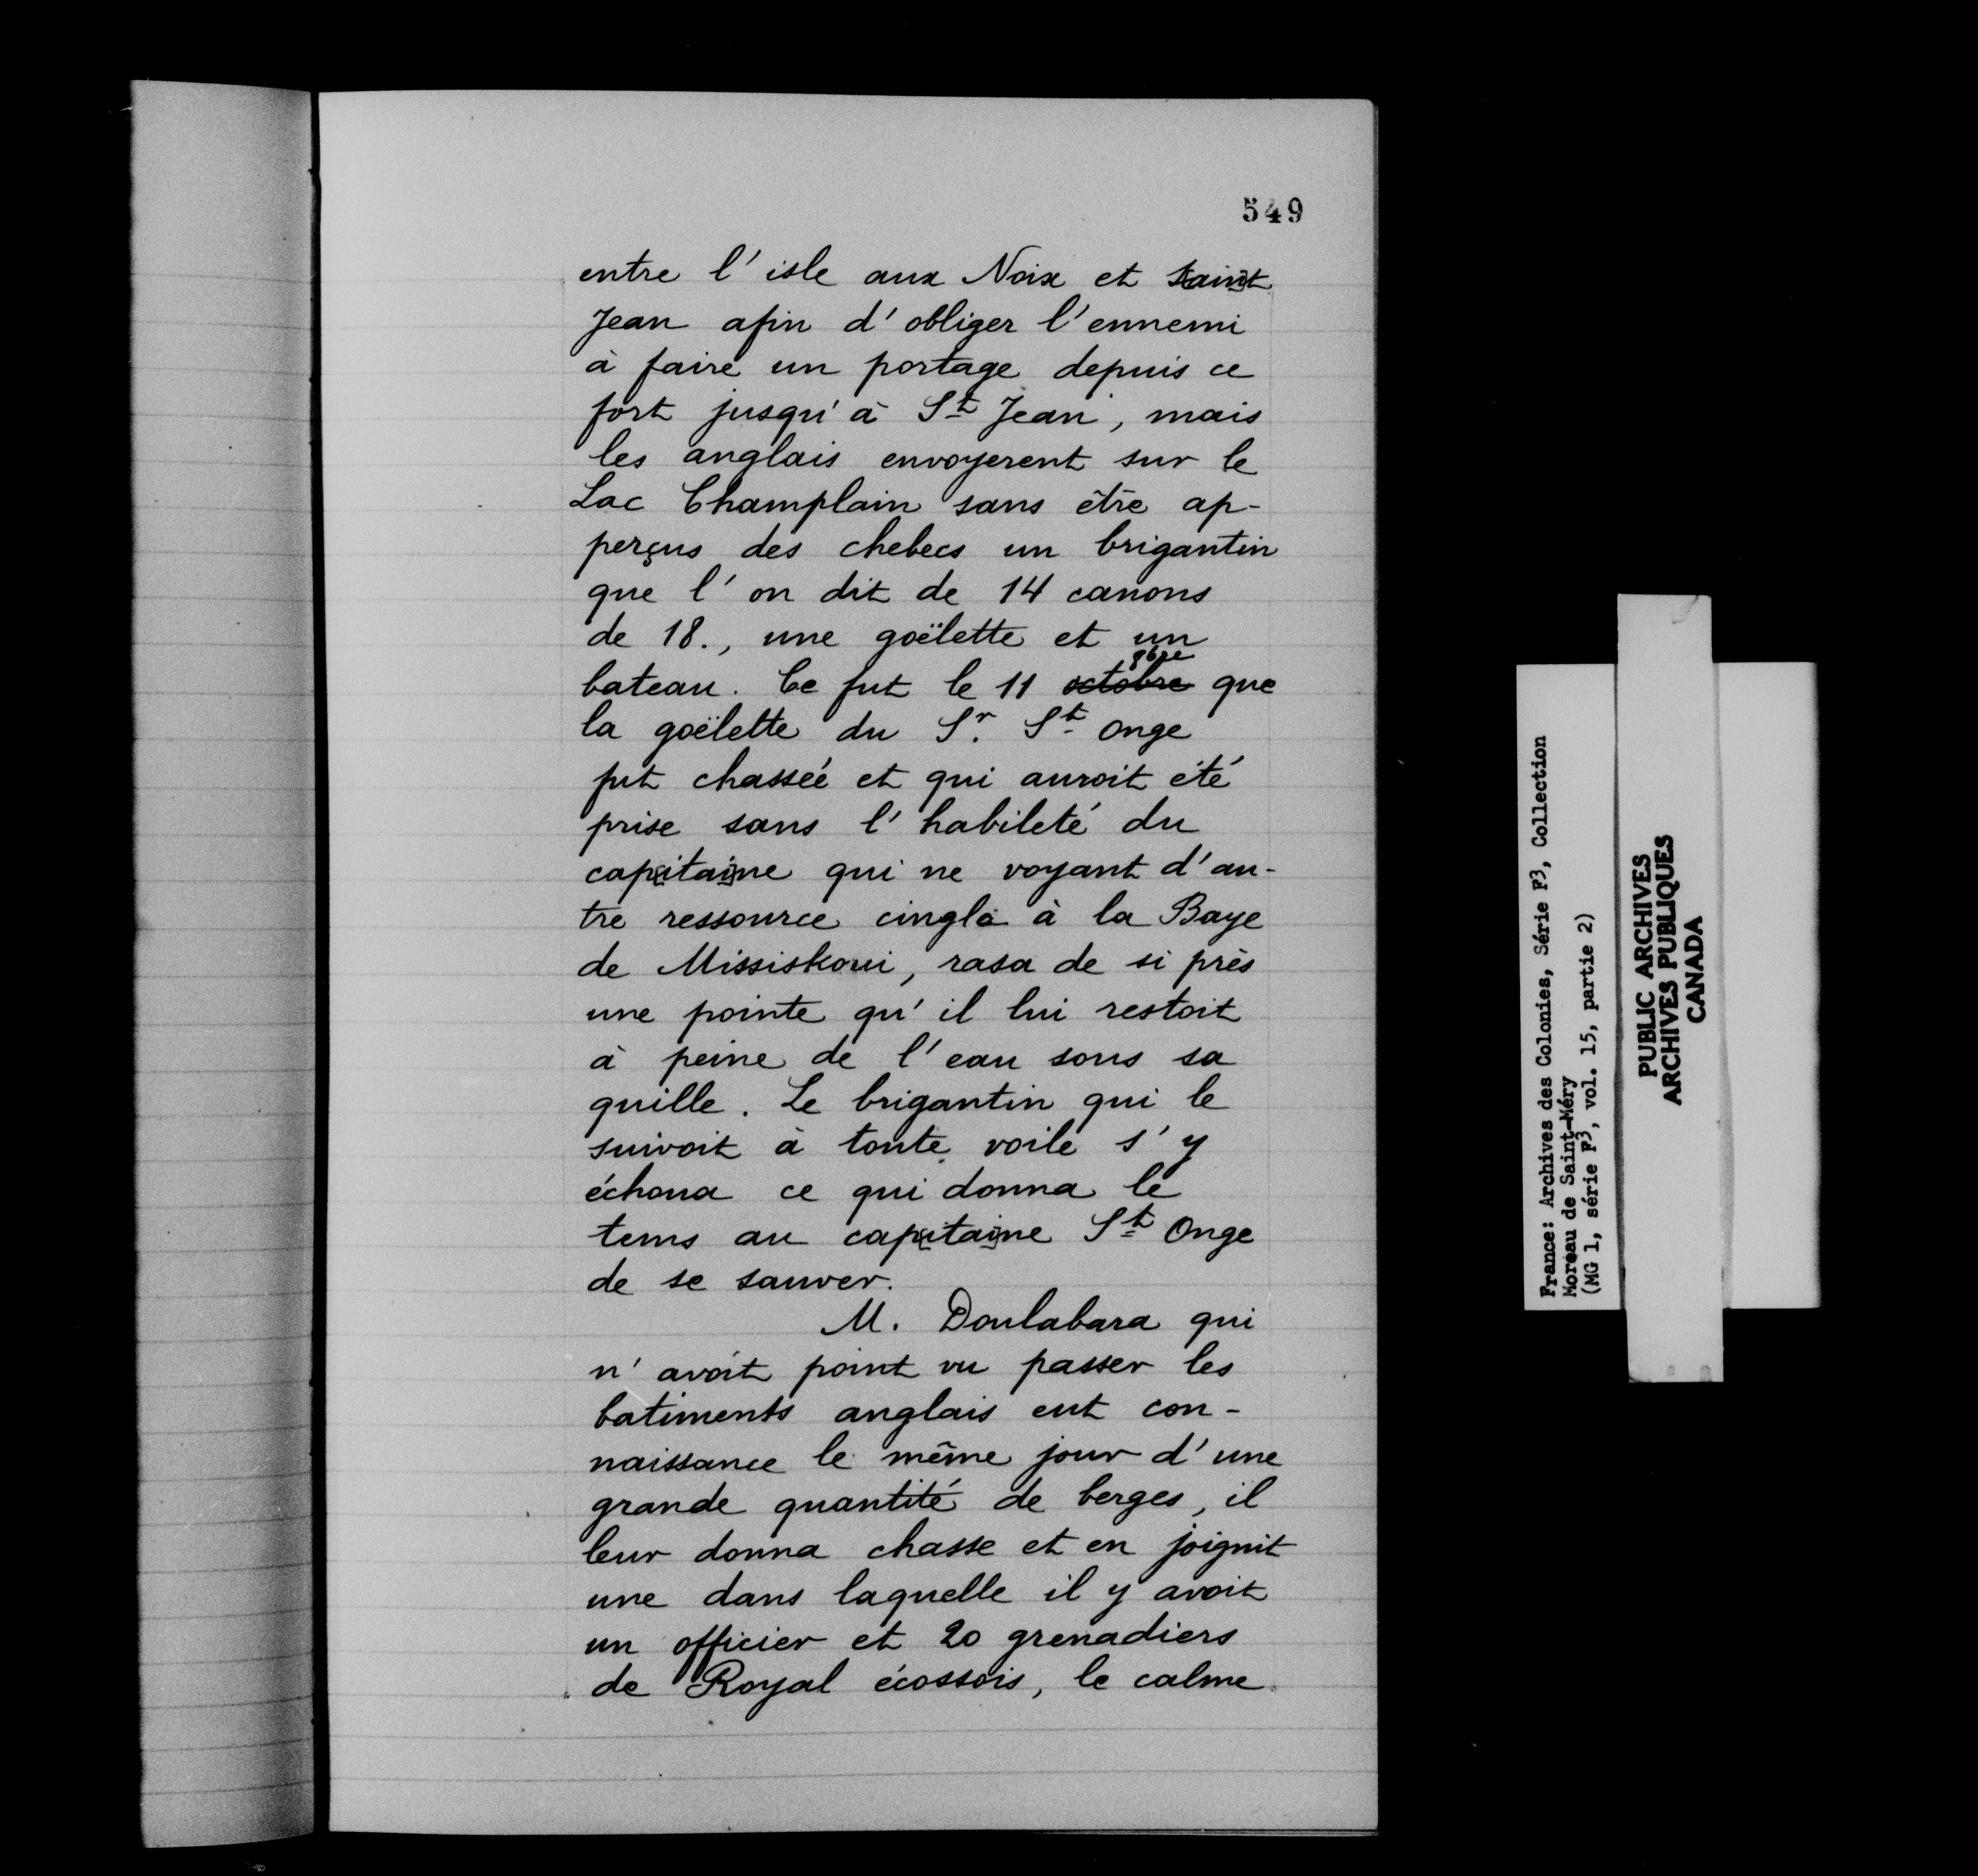 549
entre l'isle aux Noix et S[ain]t
Jean afin d'obliger l'ennemi
à faire un portage depuis ce
fort jusqu'à St Jean, mais
les anglais envoyerent sur le
Lac Champlain sans être ap-
perçus des chebecs un brigantin
que l'on dit de 14 canons
de 18., une goëlette et un
bateau. Ce fut le 11 octobre 8bre que
la goëlette du Sr. St Onge
fut chasséé et qui auroit été
prise sans l'habileté du
cap[itai]ne qui ne voyant d'au-
tre ressource cingla à la Baye
de Missiskoui, rasa de si près
une pointe qu'il lui restoit
à peine de l'eau sous sa
quille. Le brigantin qui le
suivoit à toute voile s'y
échoua ce qui donna le
tems au cap[itai]ne St Onge
de se sauver.
M. Doulabara qui
n'avoit point vu passer les
batiments anglais eut con-
naissance le même jour d'une
grande quantité de berges, il
leur donna chasse et en joignit
une dans laquelle il y avoit
un officier et 20 grenadiers
de Royal écossois, le calme
France: Archives des Colonies, Série F3, Collection
Moreau de Saint-Méry
(MG 1, série F3, vol. 15, partie 2)
PUBLIC ARCHIVES
ARCHIVES PUBLIQUES
CANADA